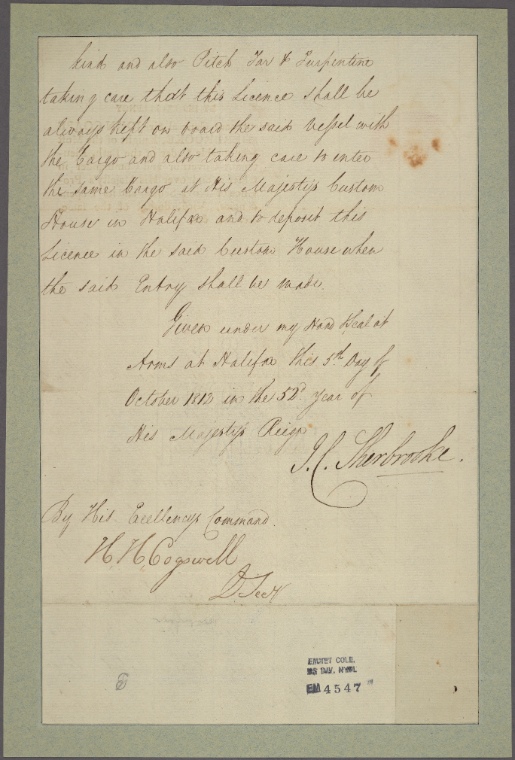 kind and also Pitch Tar & Turpentine
taking care that this Licence shall be
always kept on board the said Vessel with
the Cargo and also taking care to enter
the same Cargo at His Majestys Custom
House in Halifax and to deposit this
Licence in the said Custom House when
the said Entry shall be made.
Given under my Hand & Seal at
Arms at Halifax this 5th Day of
October 1812 in the 52d year of
His Majestys Reign
J. C. Sherbrooke.
By His Excellencys Command.
H. H. Cogswell
D. Secy
EMMET COLL.
EM 4547